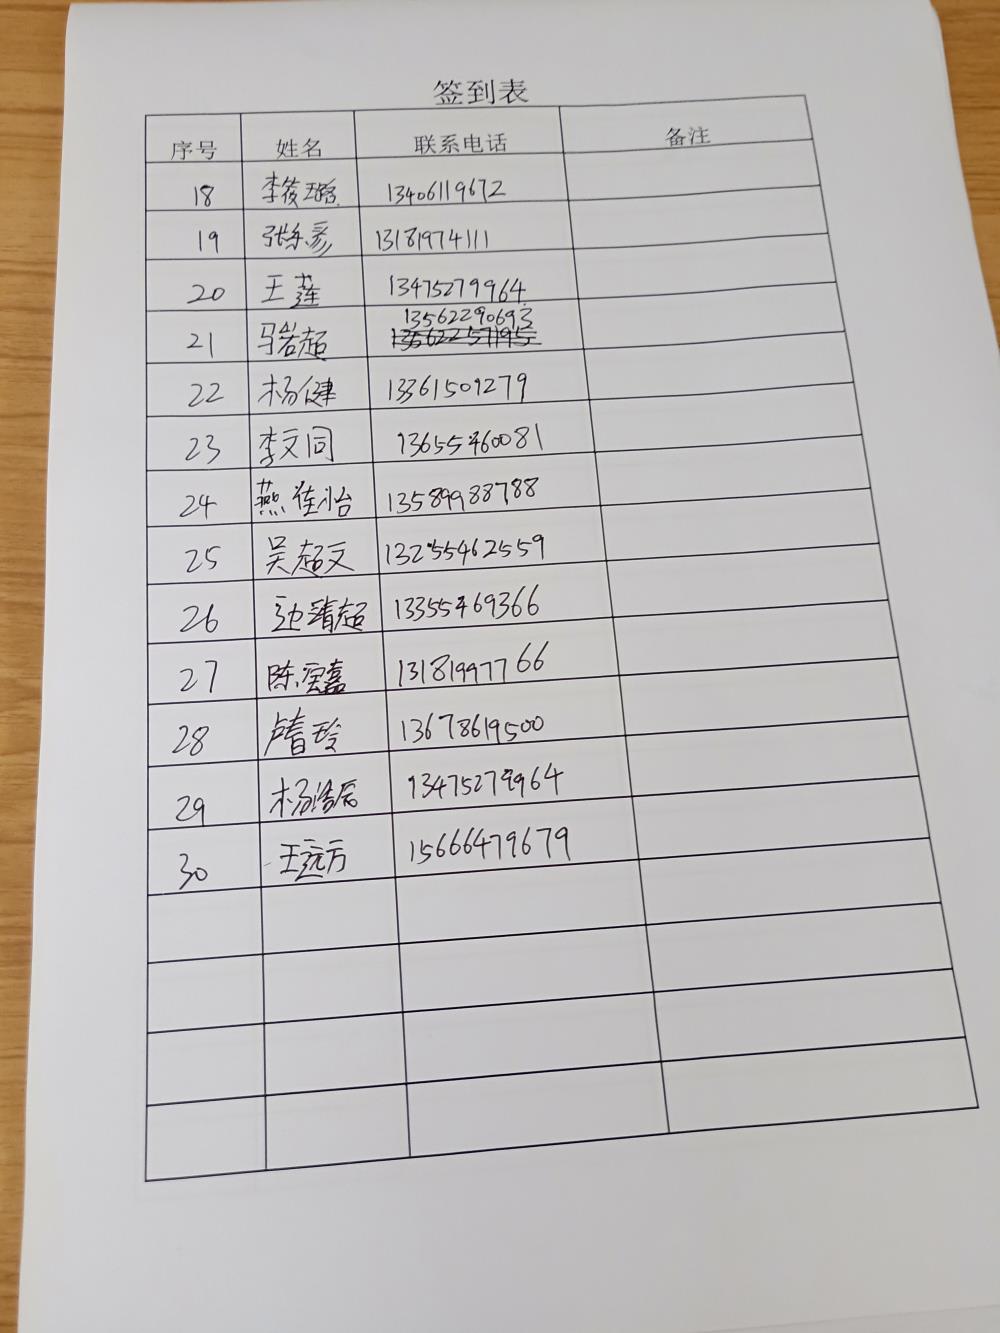 签到表
序号 姓名 联系电话 备注
18 李筱璐 13406119672
19 张东彦 13181974111
20 王莲 13475279964
21 马岩超 13562290693
13562257195
22 杨健 13361509279
23 李文同 13655460081
24 燕佳怡 13589988788
25 吴超文 13255462559
26 边靖超 13355469366
27 陈宝嘉 13181997766
28 卢春玲 13678619500
29 杨浩辰 13475279964
30 王远方 15666479679